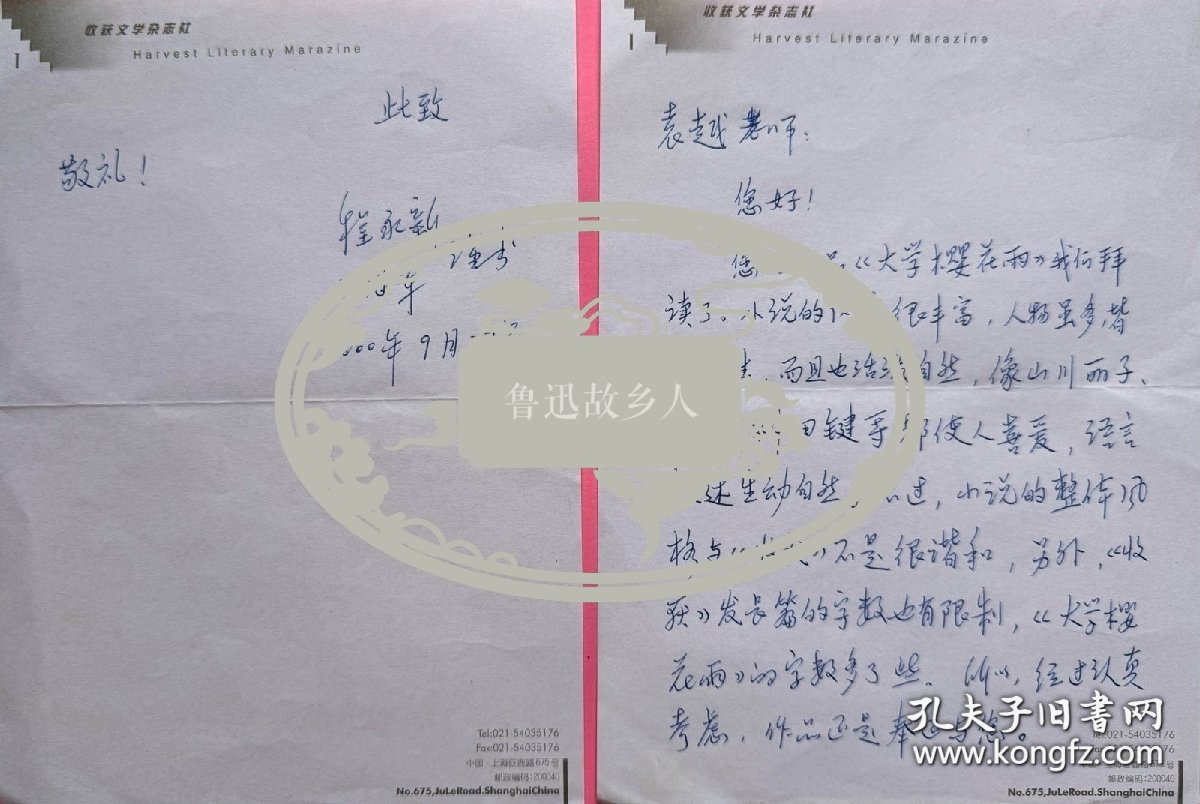 收获文学杂志社
Harvest Literary Marazine
1
袁越老师：
您好！
您 《大学樱花雨》我们拜
读了。小说的 很丰富，人物虽多，皆
而且也活泼自然，像山川丽子、
田键等都使人喜爱，语言
述生动自然。不过，小说的整体风
格与《 》不是很谐和，另外，《收
获》发长篇的字数也有限制，《大学樱
花雨》的字数多了些。所以，经过认真
考虑，作品还是奉还与您。
Tel:021-54035176
邮政编码:200040
No.675,JuLeRoad.ShanghaiChina
收获文学杂志社
Harvest Literary Marazine
1
此致
敬礼！
程永新
年 9月
Tel:021-54035176
Fax:021-54035176
中国·上海巨鹿路675号
邮政编码:200040
No.675,JuLeRoad.ShanghaiChina
鲁迅故乡人
孔夫子旧书网
www.kongfz.com